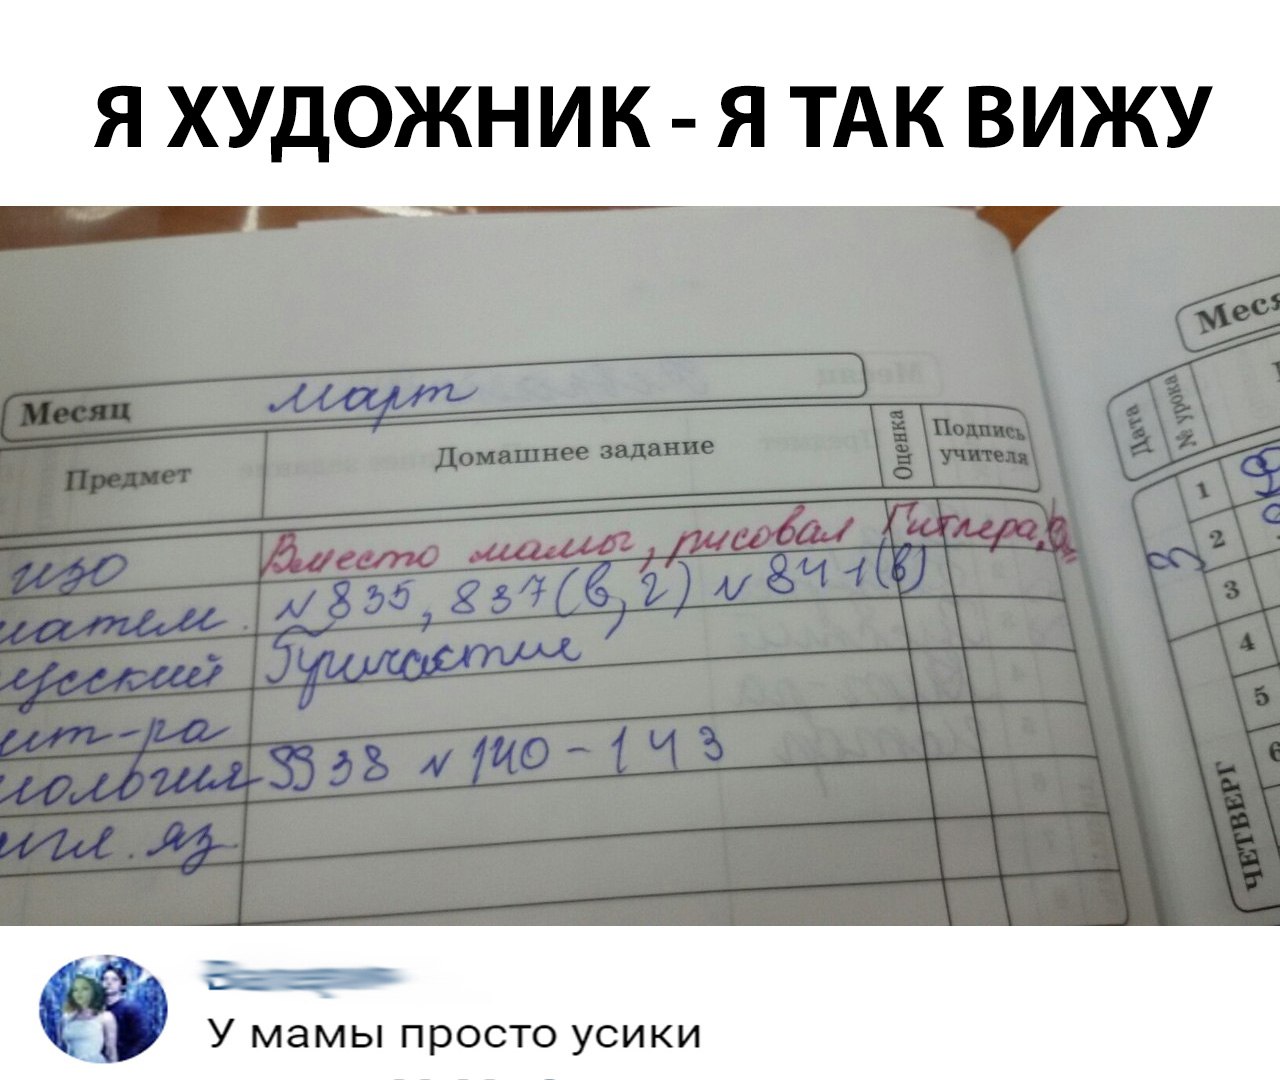 Я ХУДОЖНИК - Я ТАК ВИЖУ
Месяц март
Меся
Предмет Домашнее задание Оценка Подпись учителя
Дата № урока
изо Вместо мамы, рисовал Гитлера
матем. №835, 837(в, г) №841(в)
русский Причастие
лит-ра
иология §§38 №140-143
нгл. яз.
3
1
2
3
4
5
6
ЧЕТВЕРГ
У мамы просто усики